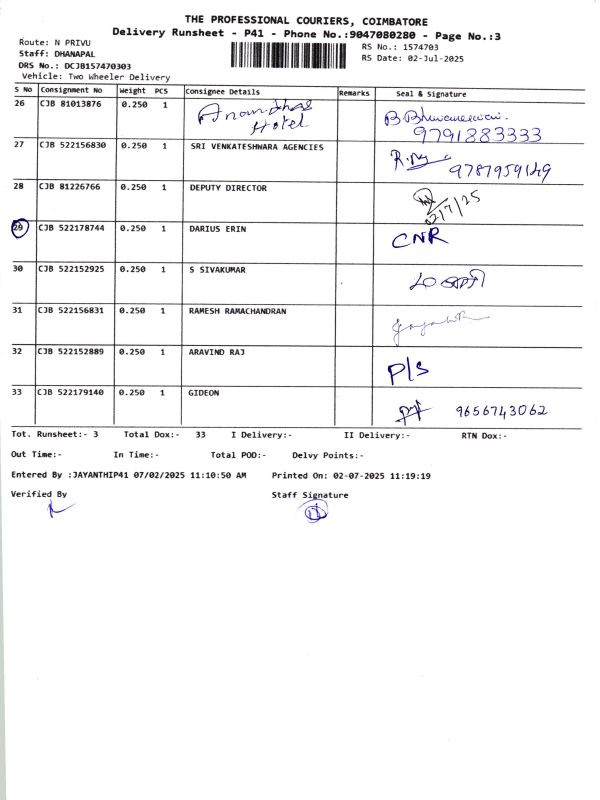 THE PROFESSIONAL COURIERS, COIMBATORE
Delivery Runsheet - P41 - Phone No.:9047080280 - Page No.:3
Route: N PRIVU
RS No.: 1574703
Staff: DHANAPAL
RS Date: 02-Jul-2025
DRS No.: DCJB157470303
Vehicle: Two Wheeler Delivery
S No Consignment No Weight PCS Consignee Details Remarks Seal & Signature
26 CJB 81013876 0.250 1 Hotel B.
9791883333
27 CJB 522156830 0.250 1 SRI VENKATESHWARA AGENCIES 9787959149
28 CJB 81226766 0.250 1 DEPUTY DIRECTOR 02/7/25
29 CJB 522178744 0.250 1 DARIUS ERIN CNR
30 CJB 522152925 0.250 1 S SIVAKUMAR
31 CJB 522156831 0.250 1 RAMESH RAMACHANDRAN
32 CJB 522152889 0.250 1 ARAVIND RAJ P/S
33 CJB 522179140 0.250 1 GIDEON 9656743062
Tot. Runsheet:- 3 Total Dox:- 33 I Delivery:- II Delivery:- RTN Dox:-
Out Time:- In Time:- Total POD:- Delvy Points:-
Entered By :JAYANTHIP41 07/02/2025 11:10:50 AM Printed On: 02-07-2025 11:19:19
Verified By Staff Signature